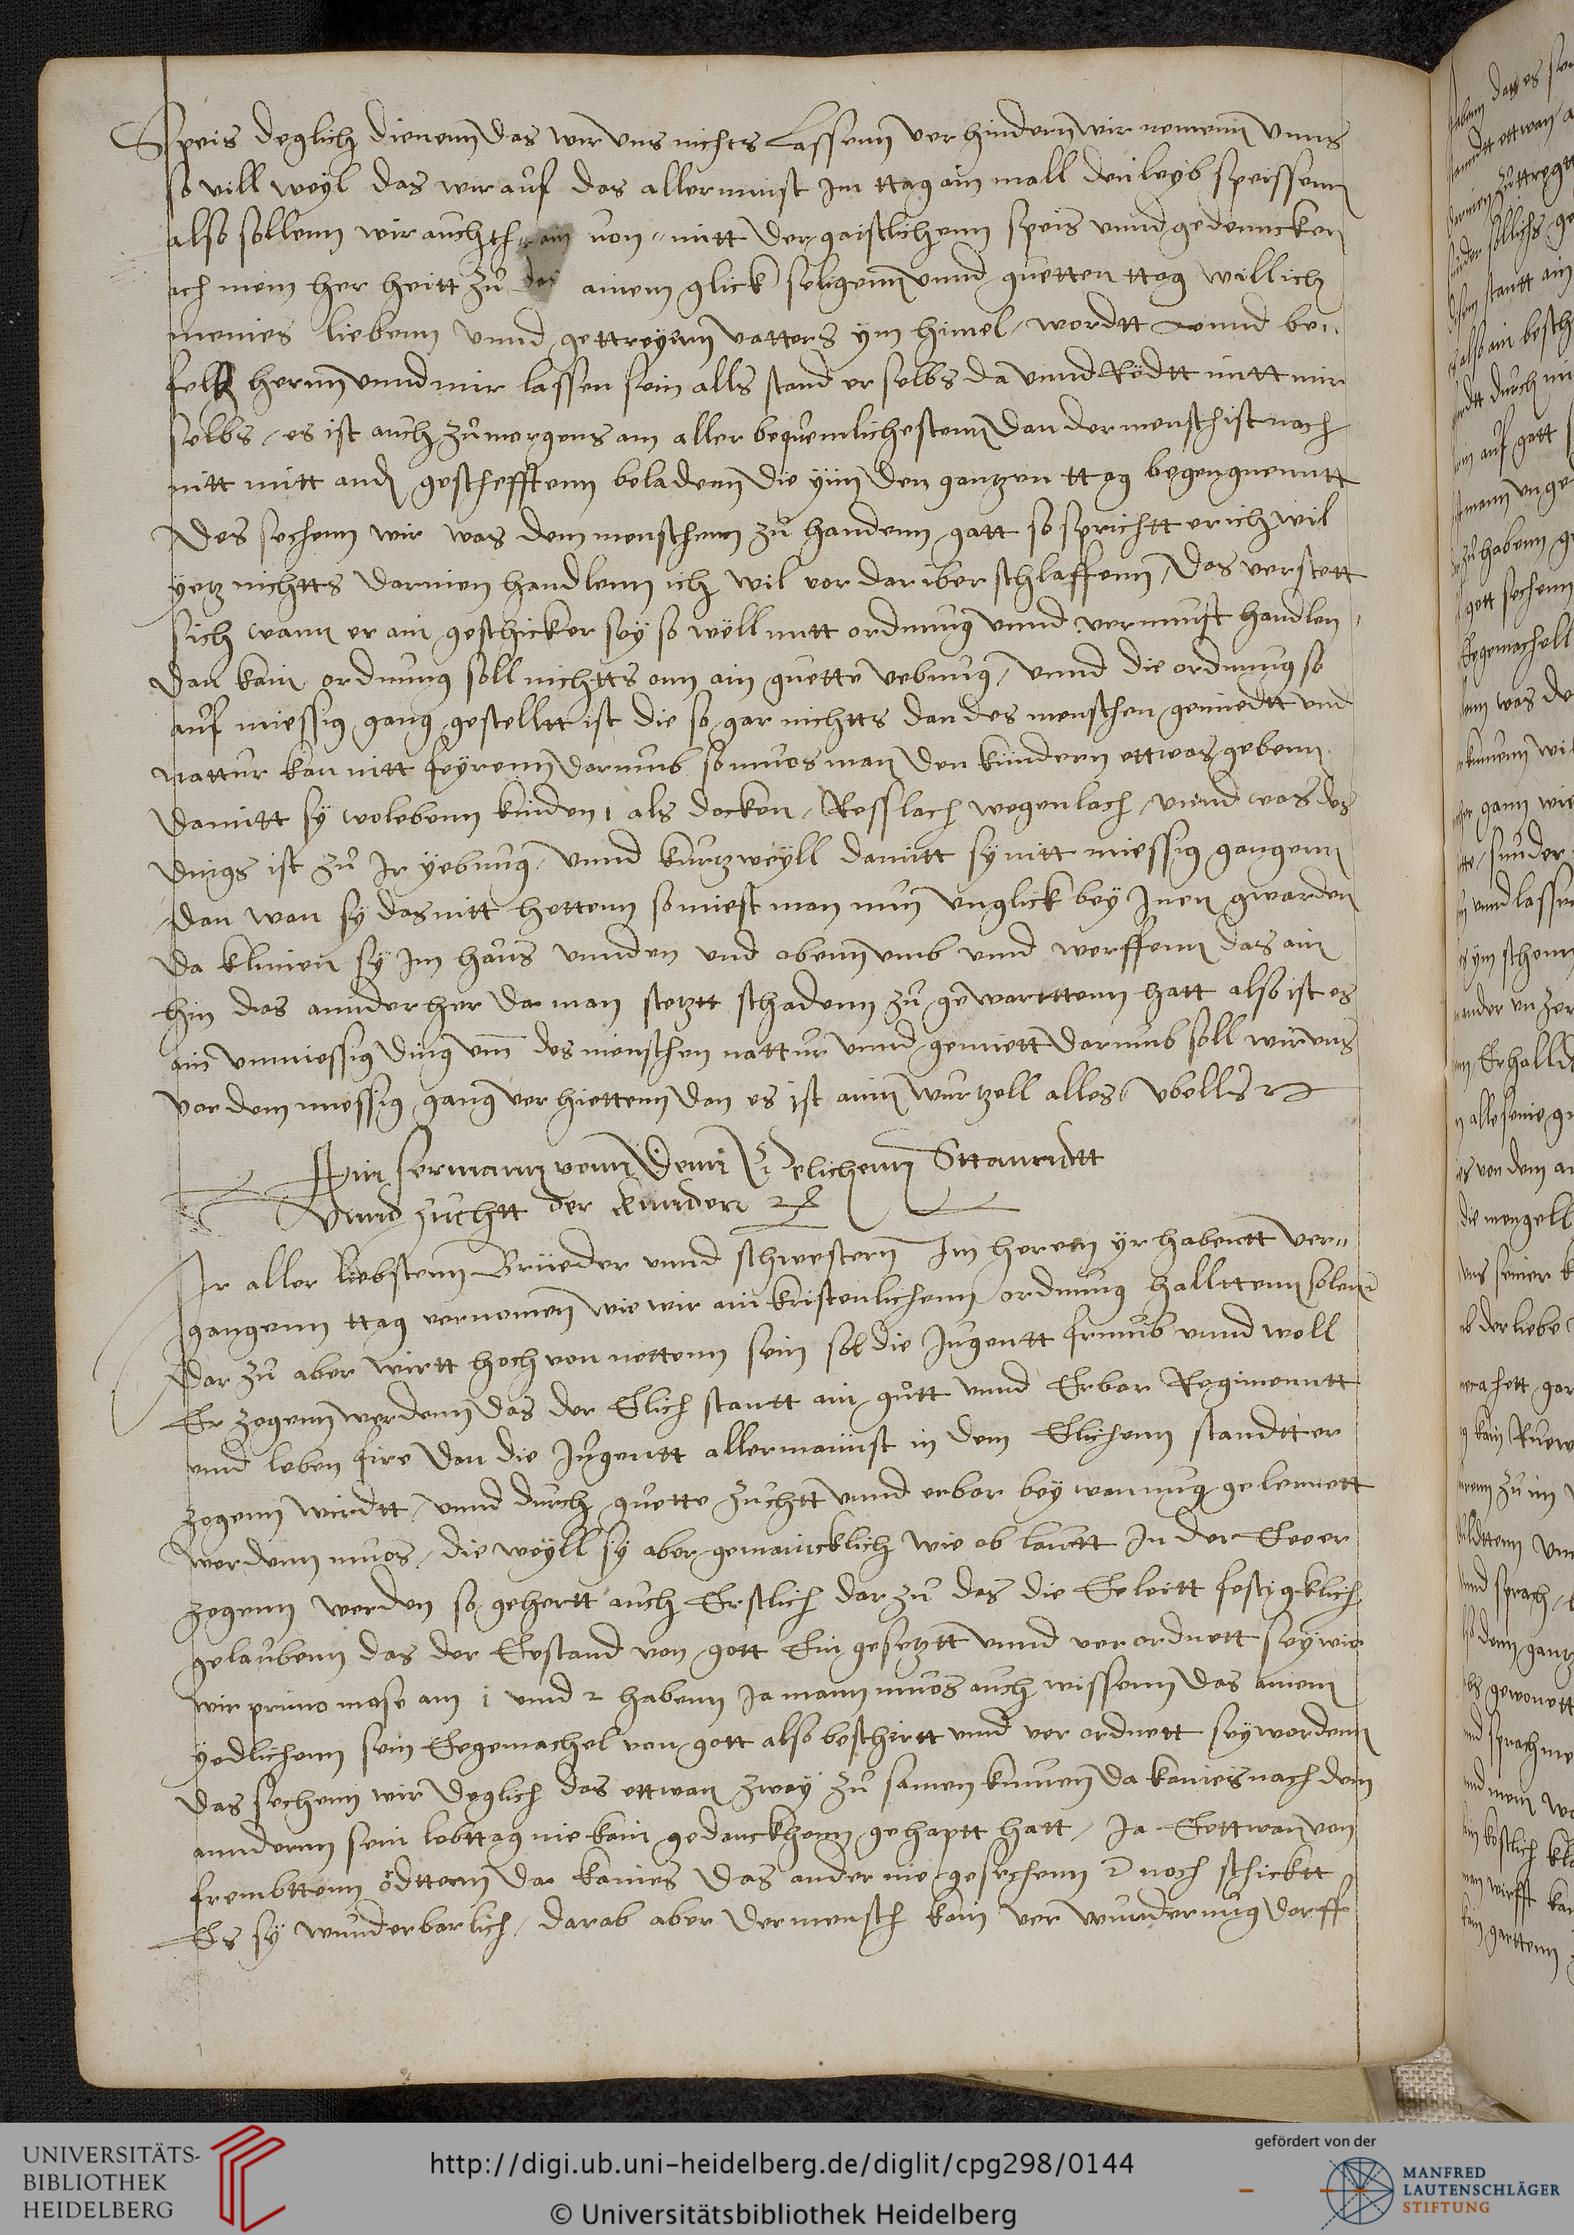 Speis deglich dienenn das wir uns nichts Lassenn verhindern wir nemenn unns
so vill weyl das wir auf das allerminst im ttag ain mall den leyb speissenn
also sollenn wir auch ain von mitt der gaistlichenn speis unnd gedennckhen
ach mein her heitt zů ainem glick seligenn unnd guetten ttag willich
meines liebenn unnd gettreyenn vatters ym himel wordtt unnd be„
felch herenn unnd mir lassen sein alls stand er selbs da unnd Rödtt mitt mir
selbs / es ist auch zů morgens am aller bequemlichestenn dan der mensch ist noch
nitt mitt and geschefftenn beladenn die yim den gantzen ttag begengnenntt
Des sechenn wir was dem menschenn zů handenn gatt so sprichtt er ich wil
yetz nichtts darinen handlenn ich wil vor dariber schlaffenn / Das verstett
sich wann er ain geschicker sey so wöll mitt ordnung unnd vernunft handlen
dan kain ordnung soll nichtts onn ain guette uebung / unnd die ordnung so
auf miessig gang gestelltt ist die so gar nichtts dan des menschen gemiedtt und
nattur kan nitt feyrenn darumb so muos man den kindern ettwas gebenn
damitt sy zolebenn kinden als docken / Rosslach wegenlach / unnd was des
dings ist zů Ir yebung / unnd kurtzweyll damitt sy nitt miessig gangenn
dan wan sy das nitt hettenn so miest man nun unglick bey Inen gwarden
da klimen sy im haus unnden und obenn umb unnd werffenn das ain
hin das annder her da man stetztt schadenn zů gewarttenn hatt also ist es
ain unmiessig ding um des menschen nattur unnd gemiett darumb soll wir uns
vor dem miessig gang verhiettenn dan es ist ainn wurtzell alles ubells
Ain sermann vonn dem Eelichenn Sttanndtt
Unnd zuchtt der kinnder
Ir aller liebstenn Brüeder unnd schwestern Im herenn yr habentt ver„
gangenn ttag vernomen wie wir ain kristenlichenn ordnung hallttenn solenn
dar zů aber wirtt hoch von nettenn sein sol die Jugentt frumb unnd woll
Er zogenn werdenn das der Elich stantt ain gůtt unnd Erbar Regimenntt
unnd leben fire dan die Jugentt allermainst in dem Elichenn standtt er
zogenn wirdtt / unnd durch guette zuchtt unnd erbar bey wonnung gelernett
werdenn muos / die weyll sy aber gemaincklich wie ob lautt In der Ee er
zogenn werden so gehertt auch Erstlich dar zů das die Eeleitt festigklich
gelaubenn das der Eestand von gott Ein gesetztt unnd verordnett sey wie
wir primo mose am 1 unnd 2 habenn Ja mann muos auch wissenn das ainem
yedlichenn sein Eegemachel von gott also beschertt unnd ver ordnett sey wordenn
das sechenn wir deglich das ettwan zway zů samen kumen da kaines nach dem
annderm sein lebttag nie kain gedanckhenn gehaptt hatt / Ja Eettwan von
frembttenn ödttern da kaines das ander nie gesechenn noch schicktt
Es sy wunderbarlich / darab aber der mensch kain ver wunderung darff
UNIVERSITÄTS-
BIBLIOTHEK
HEIDELBERG
http://digi.ub.uni-heidelberg.de/diglit/cpg298/0144
© Universitätsbibliothek Heidelberg
gefördert von der
MANFRED
LAUTENSCHLÄGER
STIFTUNG